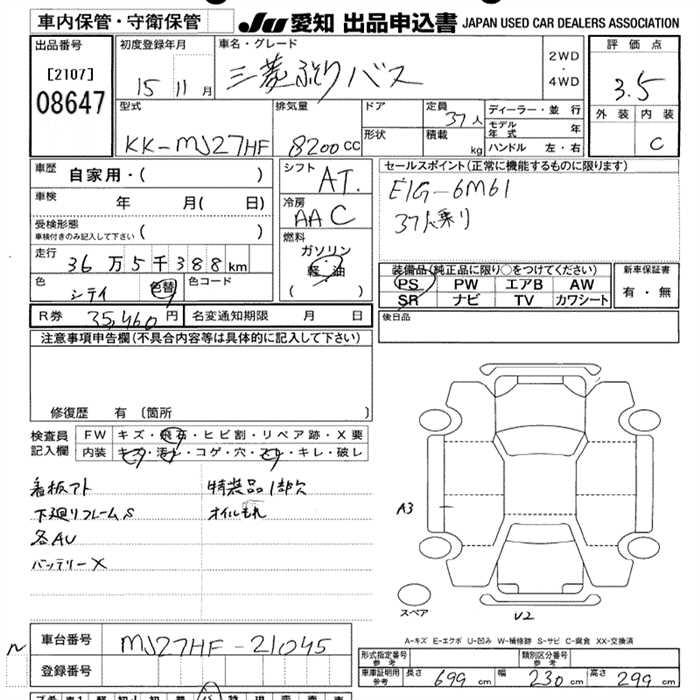 車内保管・守衛保管
JU 愛知 出品申込書 JAPAN USED CAR DEALERS ASSOCIATION
出品番号
[2107]
08647
初度登録年月
15 11 月
車名・グレード
三菱ふそうバス
2WD
・
4WD
評価点
3.5
外装 内装
C
型式
KK-MJ27HF
排気量
8200 CC
ドア
形状
定員
37人
積載
kg
ディーラー・並行
モデル年式 年
ハンドル 左・右
車歴 自家用・( )
車検 年 月( 日)
受検形態
車検付きのみ記入して下さい ( )
走行
36万5千388km
色
シティ
色替
色コード
シフト
AT.
冷房
AAC
燃料
ガソリン
軽・油
( )
セールスポイント(正常に機能するものに限ります)
EIG-6M61
37人乗り
装備品(純正品に限り○をつけてください)
PS PW エアB AW
SR ナビ TV カワシート
新車保証書
有・無
R券 35,460 円 名変通知期限 月 日
後日品
注意事項申告欄(不具合内容等は具体的に記入して下さい)
修復歴 有 〔箇所 〕
検査員
記入欄
FW キズ・飛石・ヒビ割・リペア跡・X要
内装 キズ・汚レ・コゲ・穴・スレ・キレ・破レ
看板アト
特装品1部欠
下廻りフレームS
オイルもれ
各AU
バッテリーX
A3
スペア
U2
A-キズ E-エクボ U-凹み W-補修跡 S-サビ C-腐食 XX-交換済
N
車台番号 MJ27HF-21045
登録番号
形式指定番号
参考
類別区分番号
参考
車庫証明用
参考
長さ 699 cm 幅 230 cm 高さ 299 cm